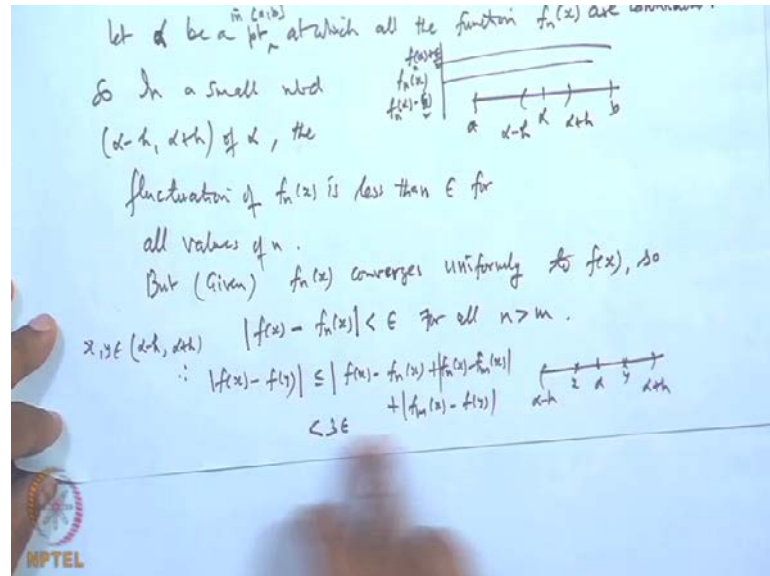 in (a,b)
let α be a pt. at which all the function fn(x) are continuous.
So In a small nbd
f(α)+ε
fn(x)
fn(α)-ε
a α-h α α+h b
(α-h, α+h) of α, the
fluctuation of fn(x) is less than ε for
all values of n.
But (Given) fn(x) converges uniformly to f(x), so
|f(x) - fn(x)| < ε for all n > m.
x, y ∈ (α-h, α+h)
∴ |f(x) - f(y)| ≤ |f(x) - fn(x) + |fn(x) - fm(x)|
+ |fm(x) - f(y)|
α-h x α y α+h
< 3ε
NPTEL